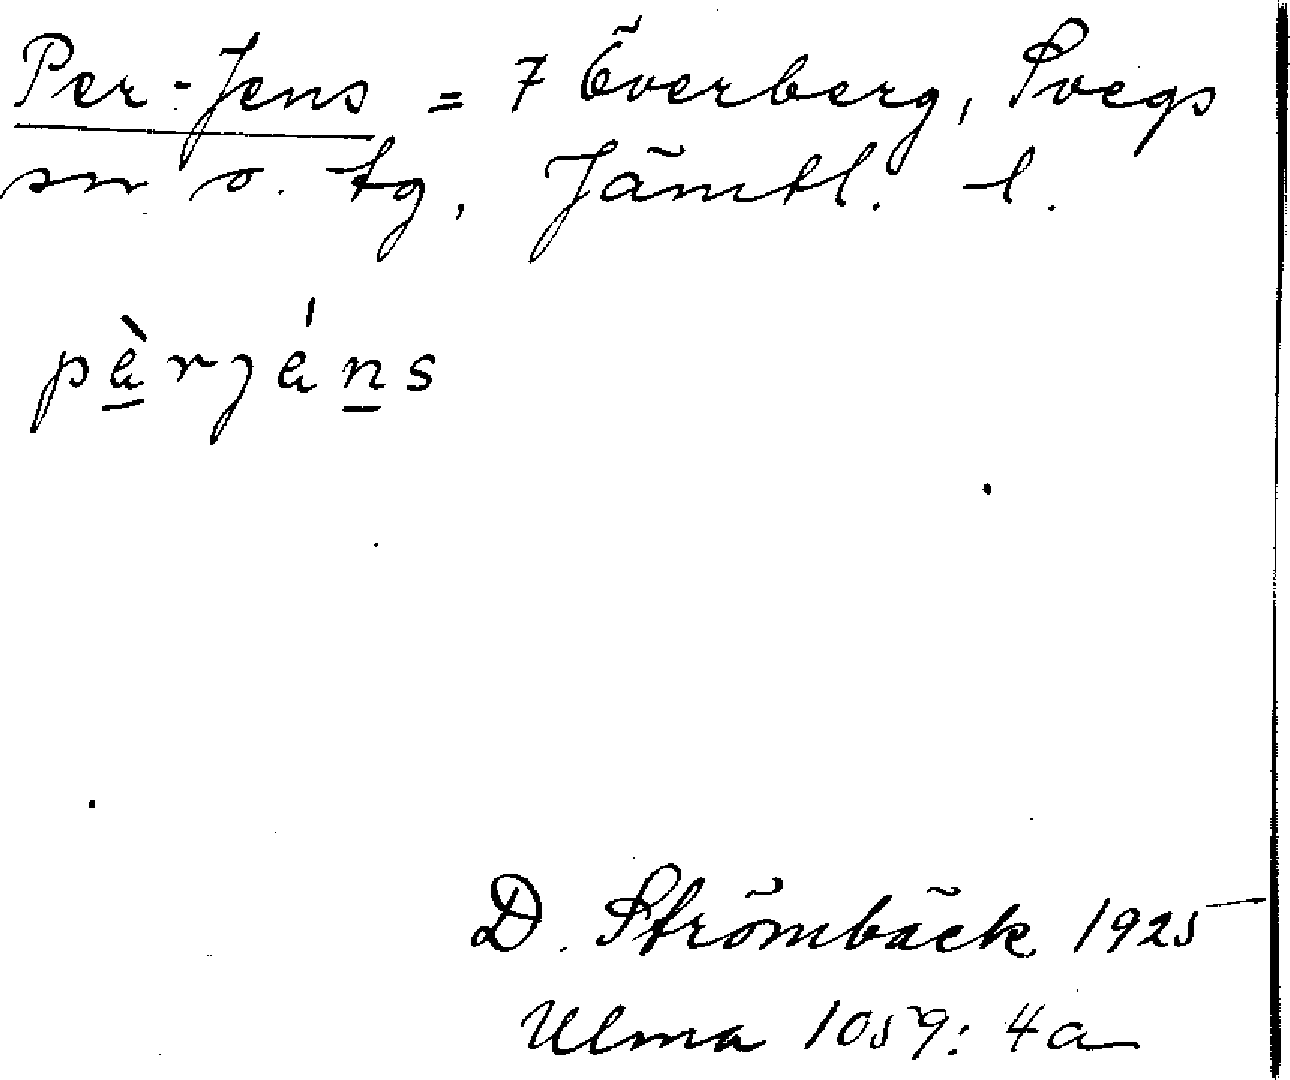 Per-Jens = 7 Överberg, Svegs
sn o. tg, Jämtl. l.
pàrjáns
D. Strömbäck 1925
Ulma 1059: 4a